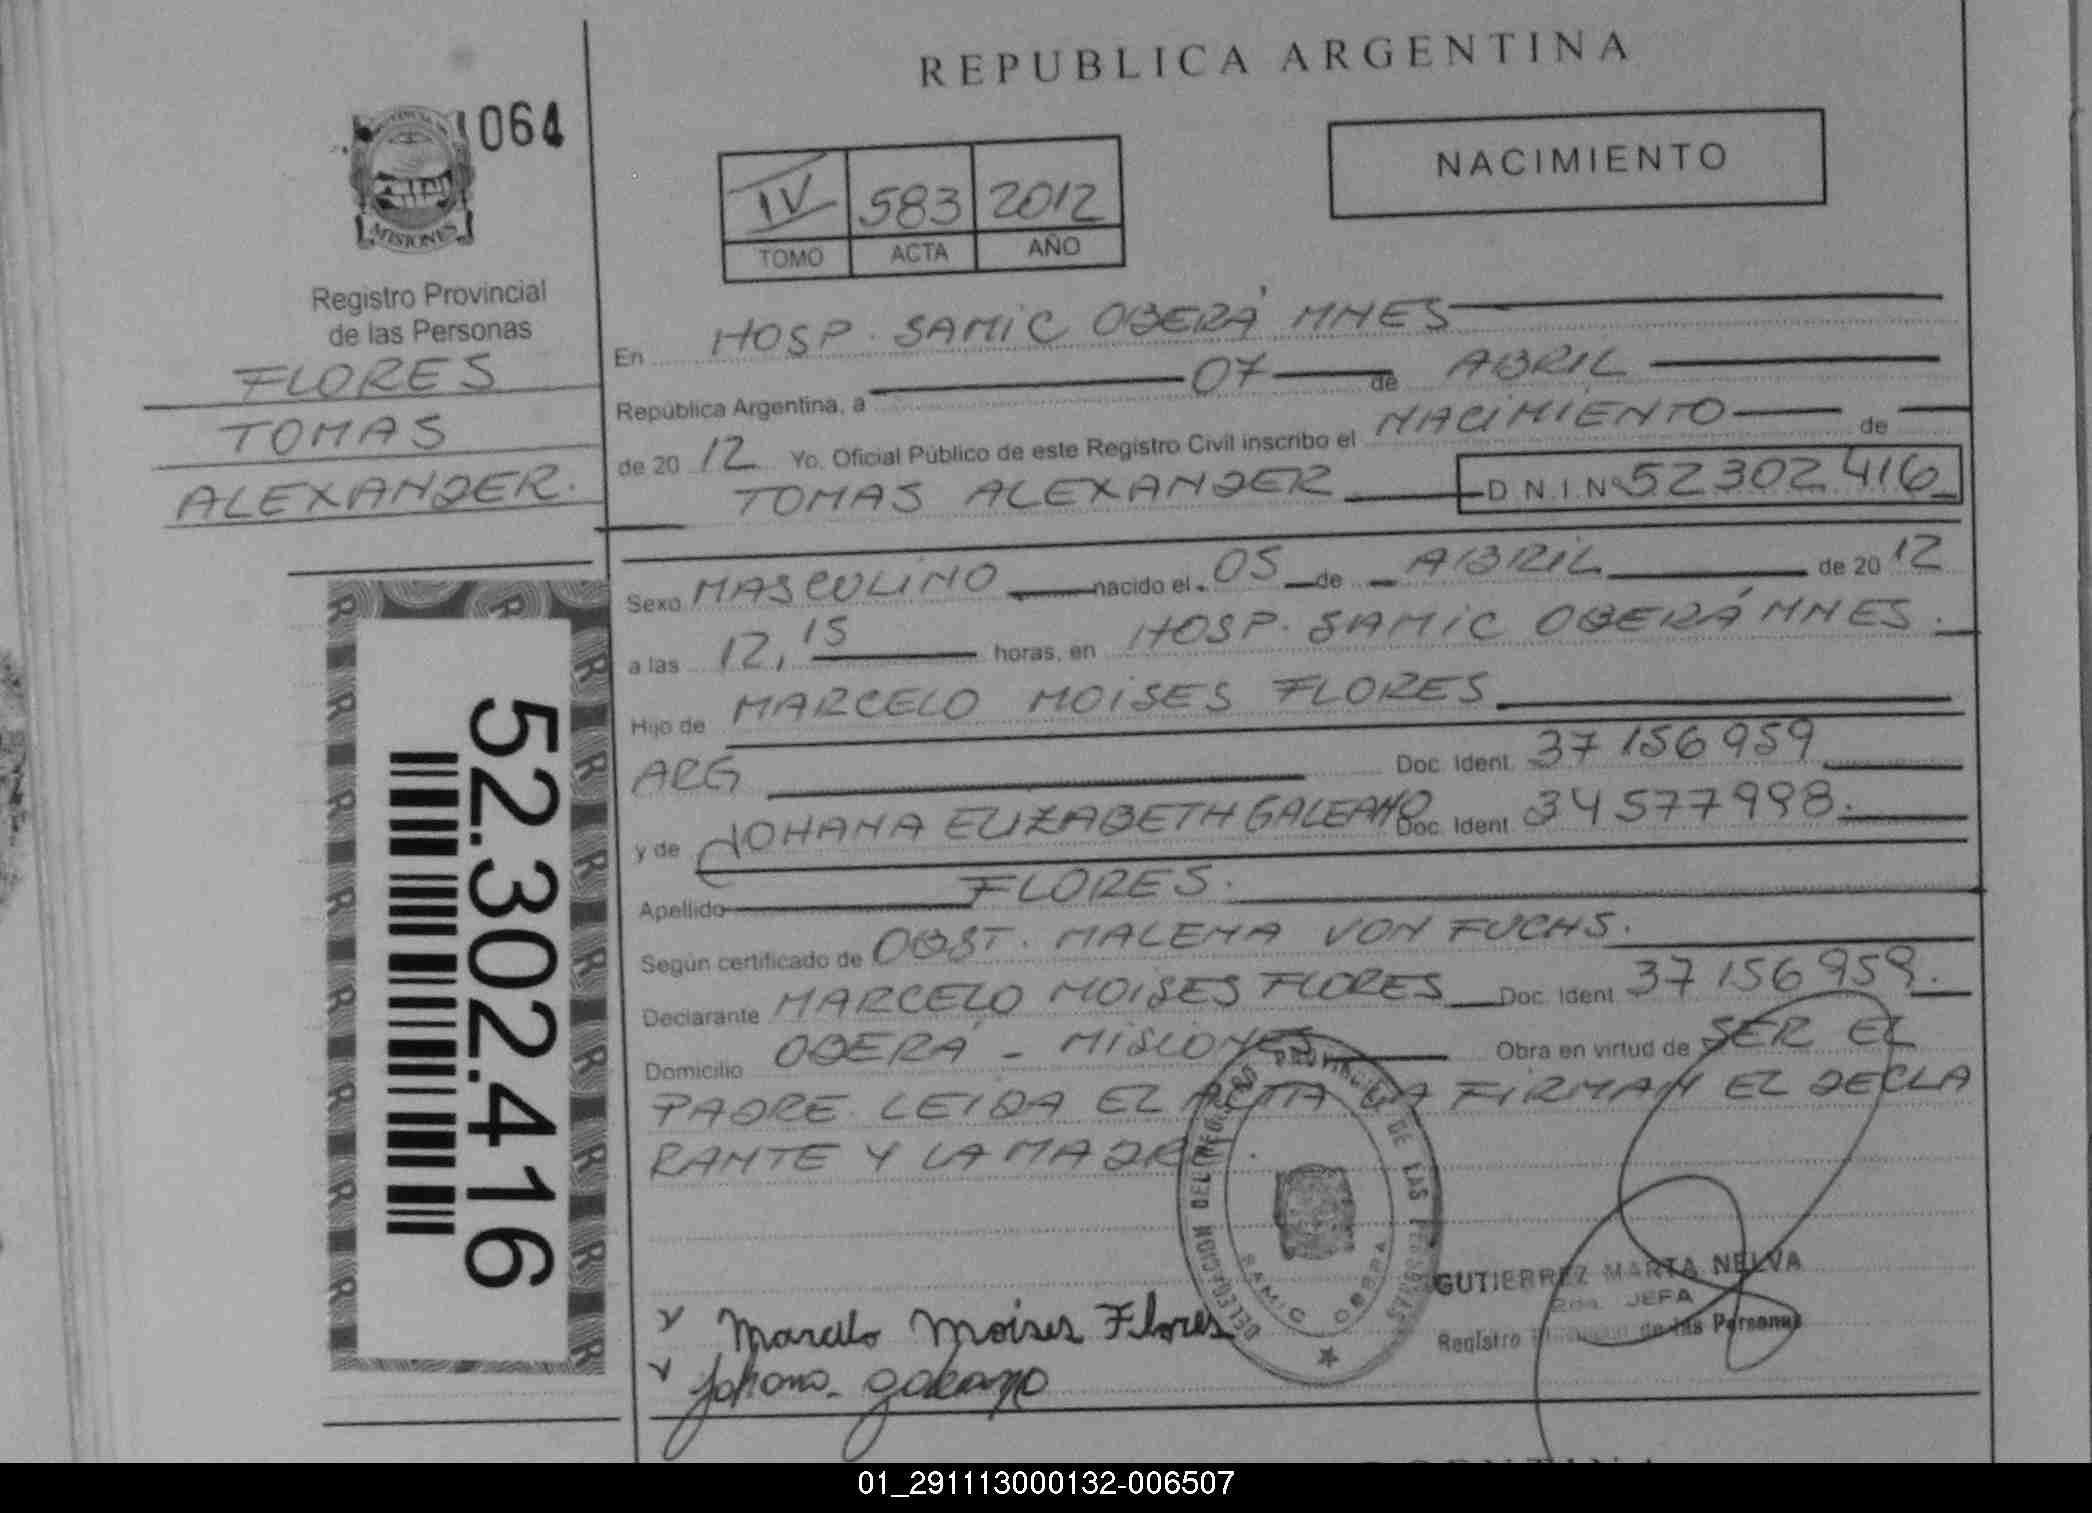 REPUBLICA ARGENTINA
064
MISIONES
NACIMIENTO
IV 583 2012
TOMO ACTA AÑO
Registro Provincial
de las Personas
FLORES
TOMAS
ALEXANDER.
En HOSP. SAMIC OBERÁ MNES
República Argentina, a 07 de ABRIL
de 20 12 Yo, Oficial Público de este Registro Civil inscribo el NACIMIENTO de
TOMAS ALEXANDER D N.I.Nº 52302416
Sexo MASCULINO nacido el 05 de ABRIL de 20 12
a las 12,15 horas, en HOSP. SAMIC OBERÁ MNES.
Hijo de MARCELO MOISES FLORES
ARG Doc. Ident. 37156959
y de JOHANA ELIZABETH GALEANO Doc. Ident. 34577998.
Apellido FLORES.
Según certificado de OBST. MALENA VON FUCHS.
Declarante MARCELO MOISES FLORES Doc. Ident. 37156959.
Domicilio OBERÁ - MISIONES Obra en virtud de SER EL
PADRE. LEIDA EL ACTA LA FIRMAN EL DECLA
RANTE Y LA MADRE.
52.302.416
DELEGACION DEL REGISTRO PROVINCIAL DE LAS PERSONAS
SAMIC OBERA
GUTIERREZ MARTA NELVA
2da. JEFA
Registro de las Personas
Marcelo Moises Flores
Johana Galeano
01_291113000132-006507